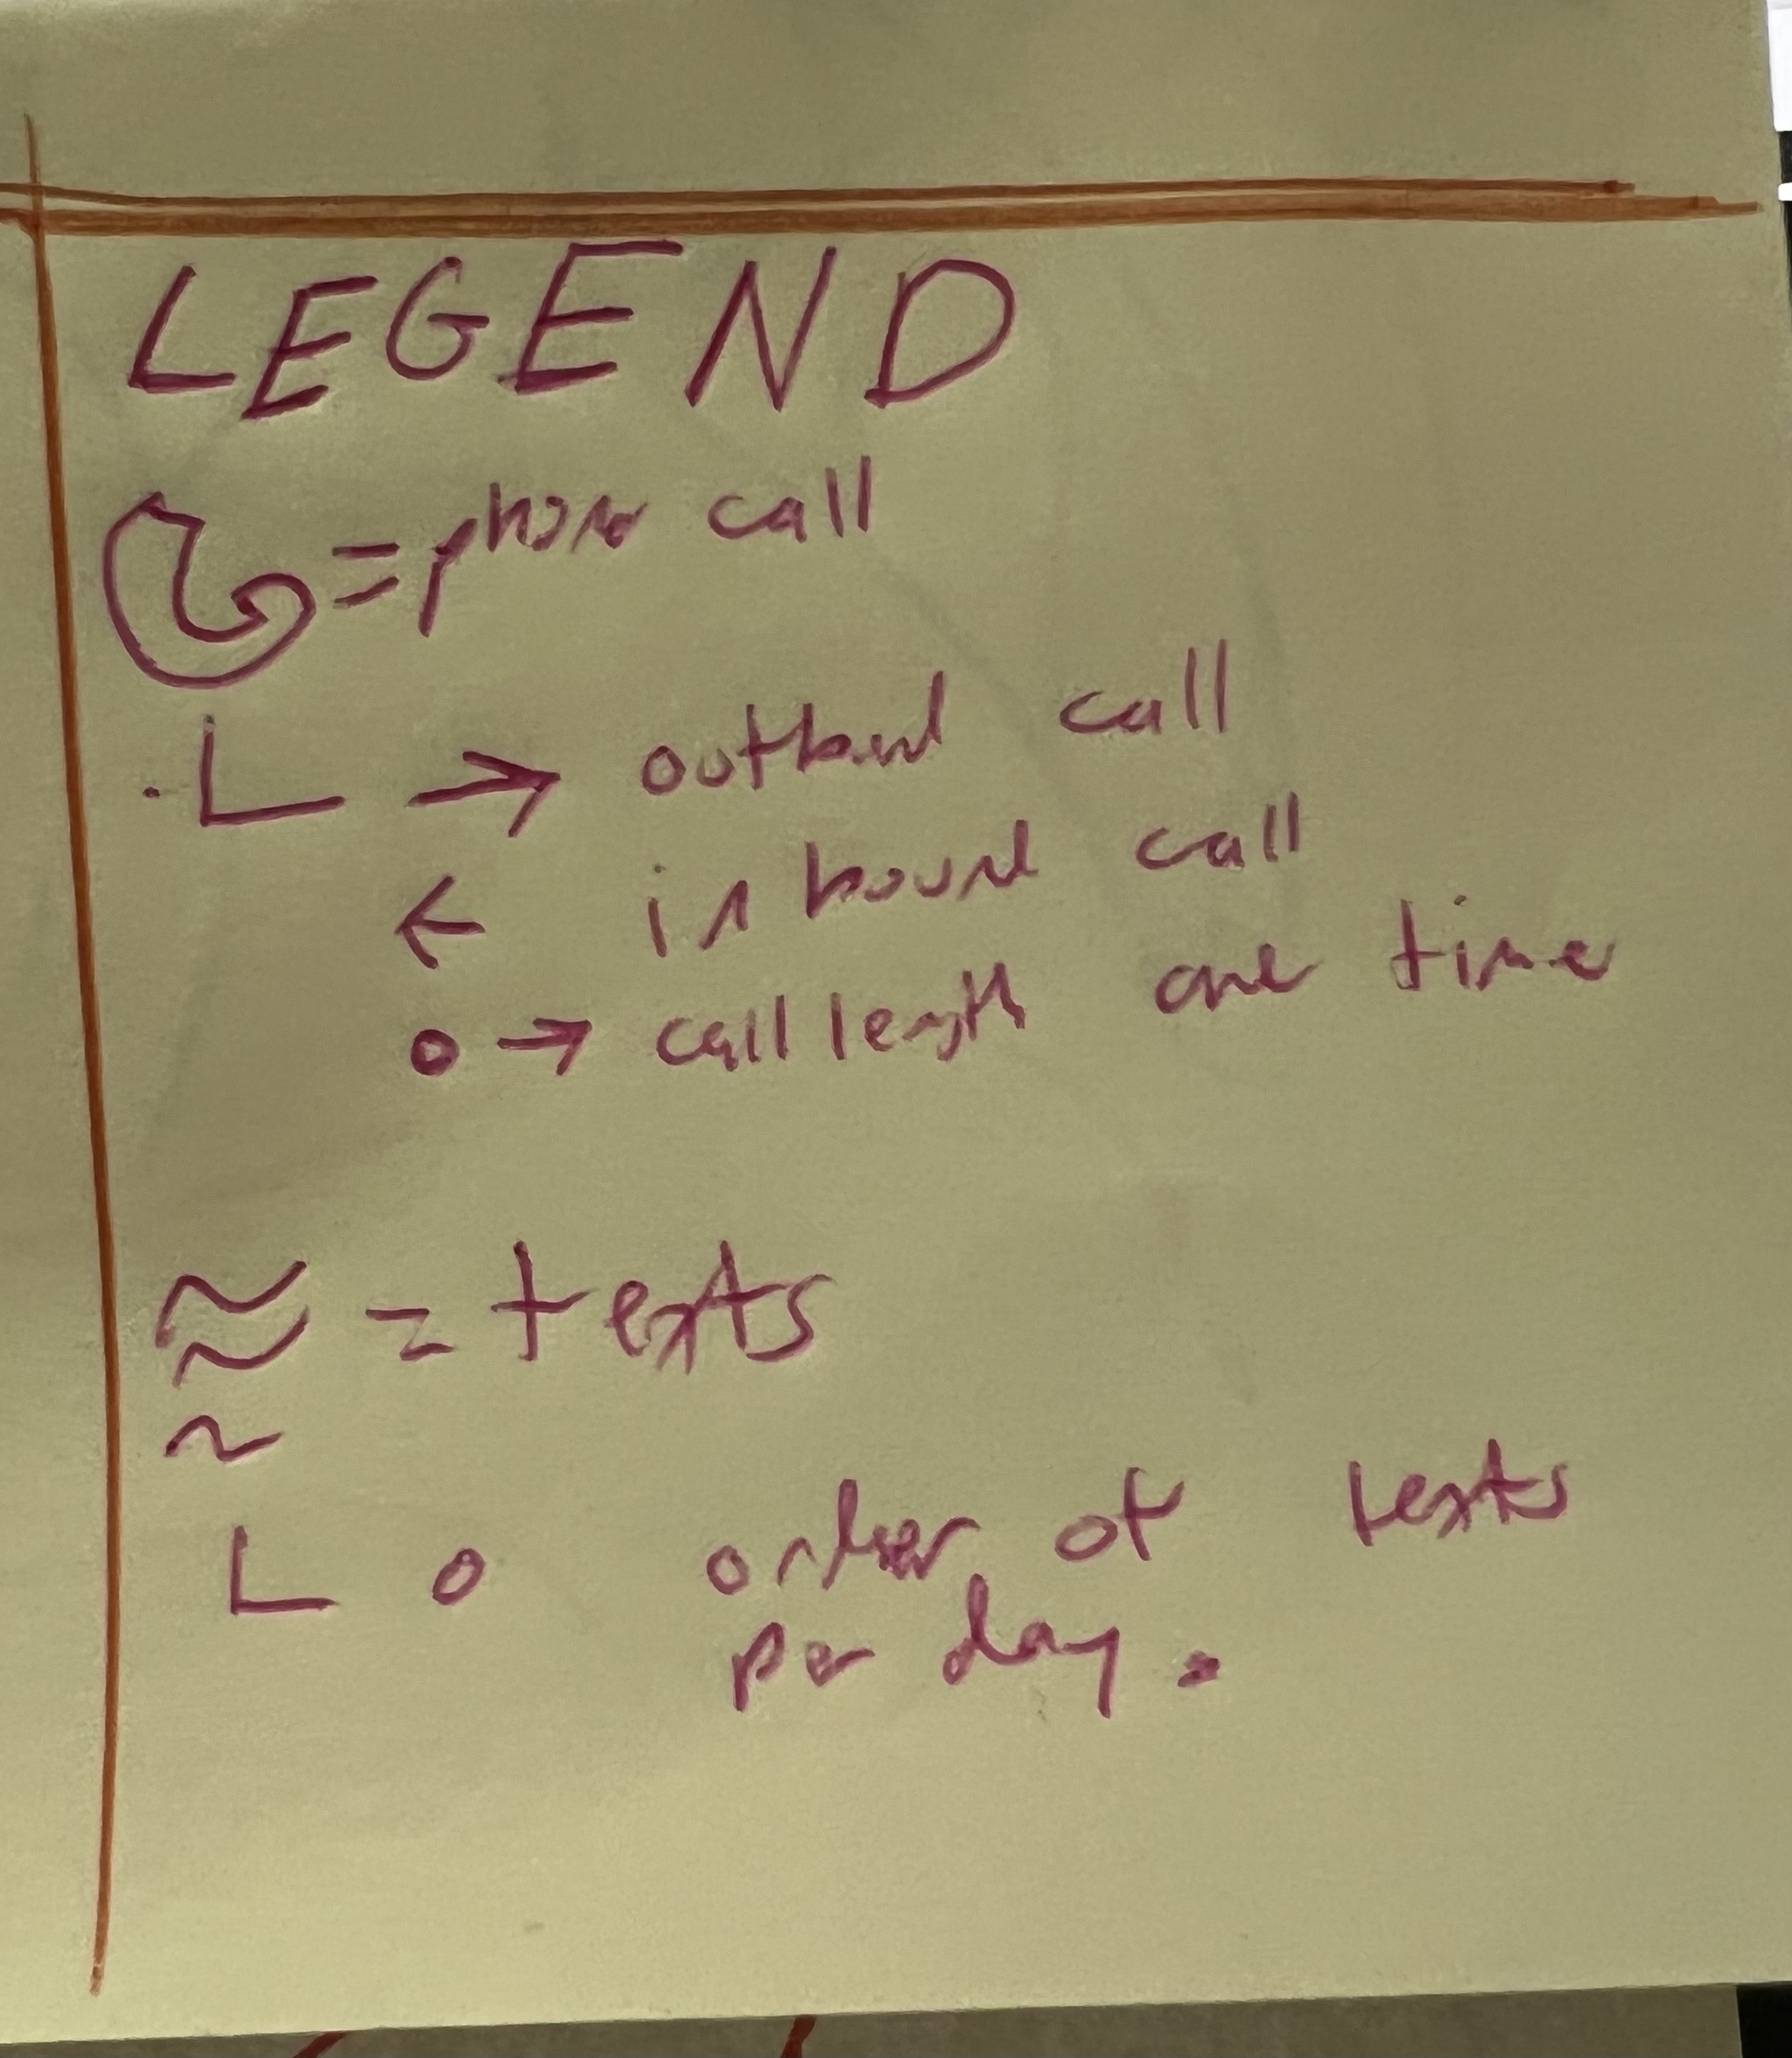 LEGEND
= phone call
→ outbound call
← inbound call
o → call length one time
= texts
o order of texts
per day.